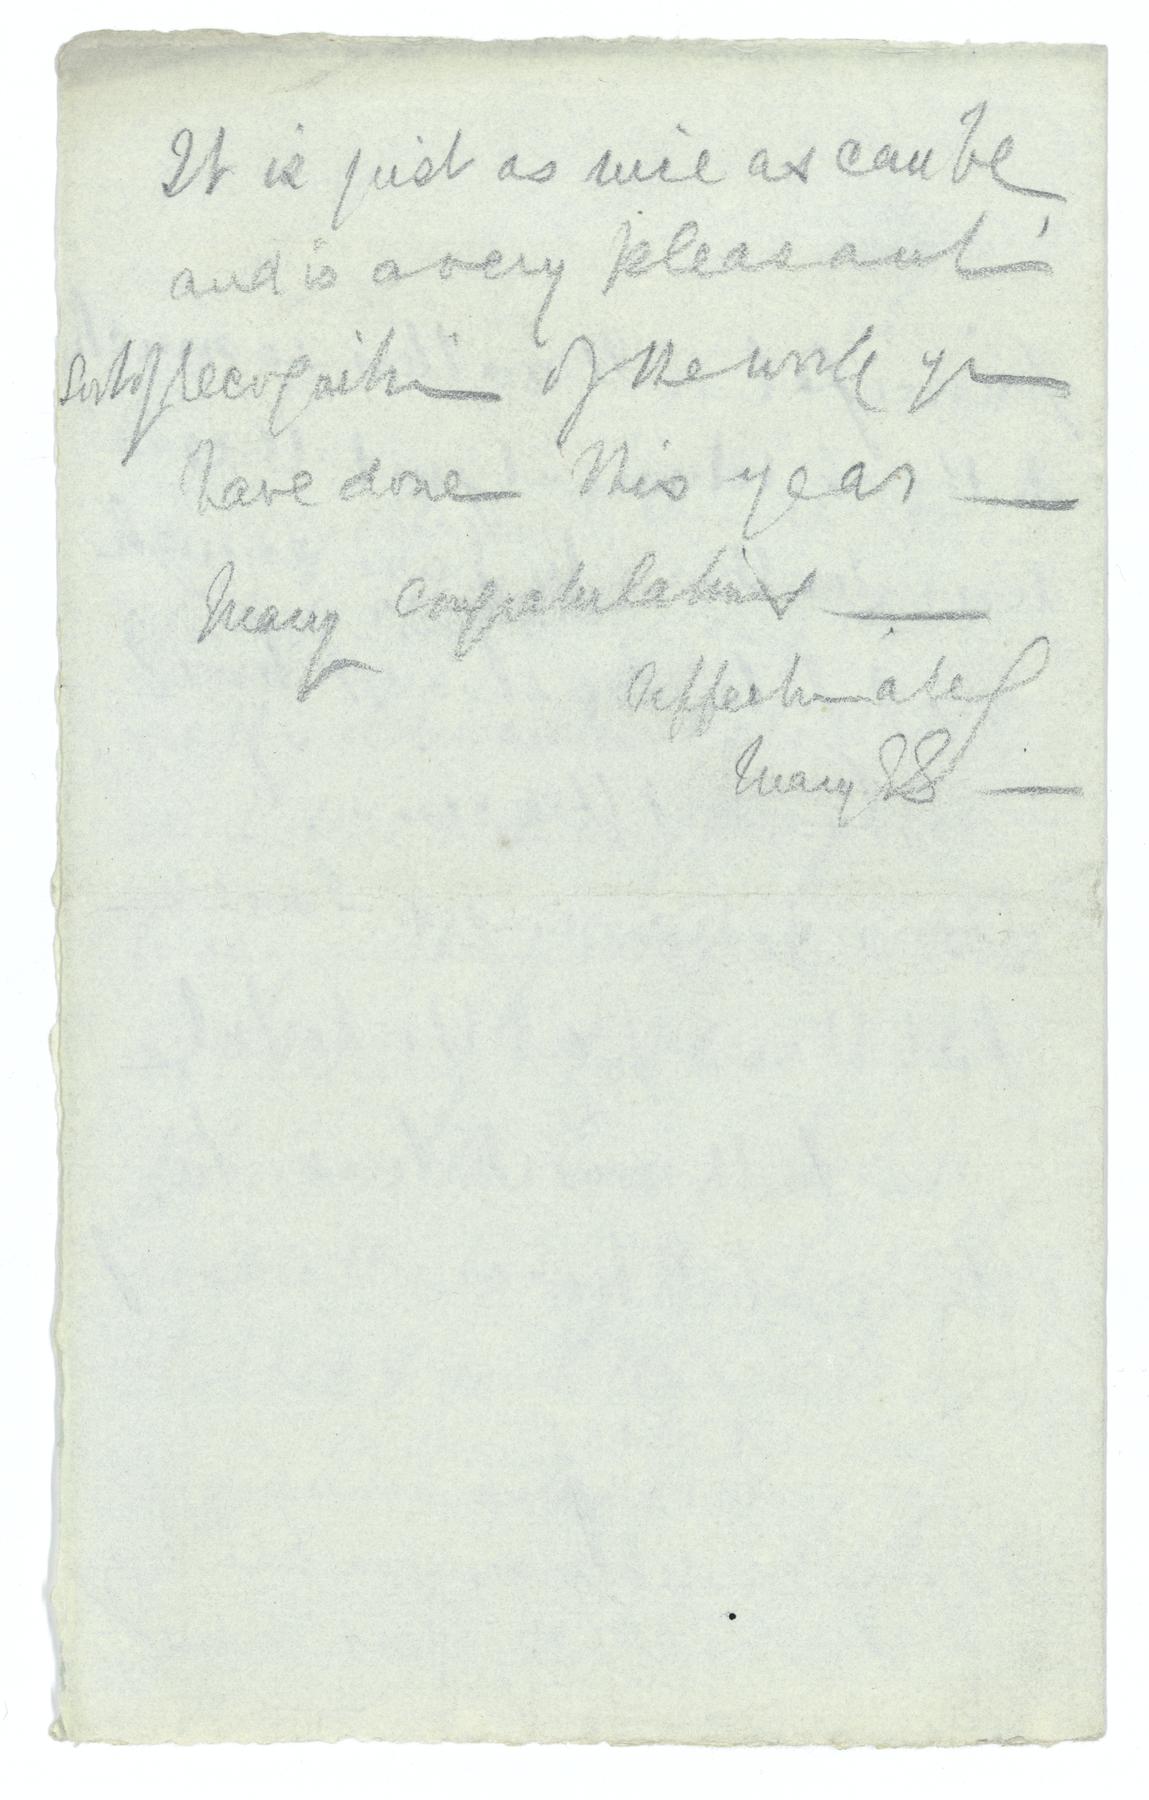 It is just as nice as can be
and is a very pleasant
sort of recognition of the work you
have done this year —
Many congratulations —
Affectionately
Mary